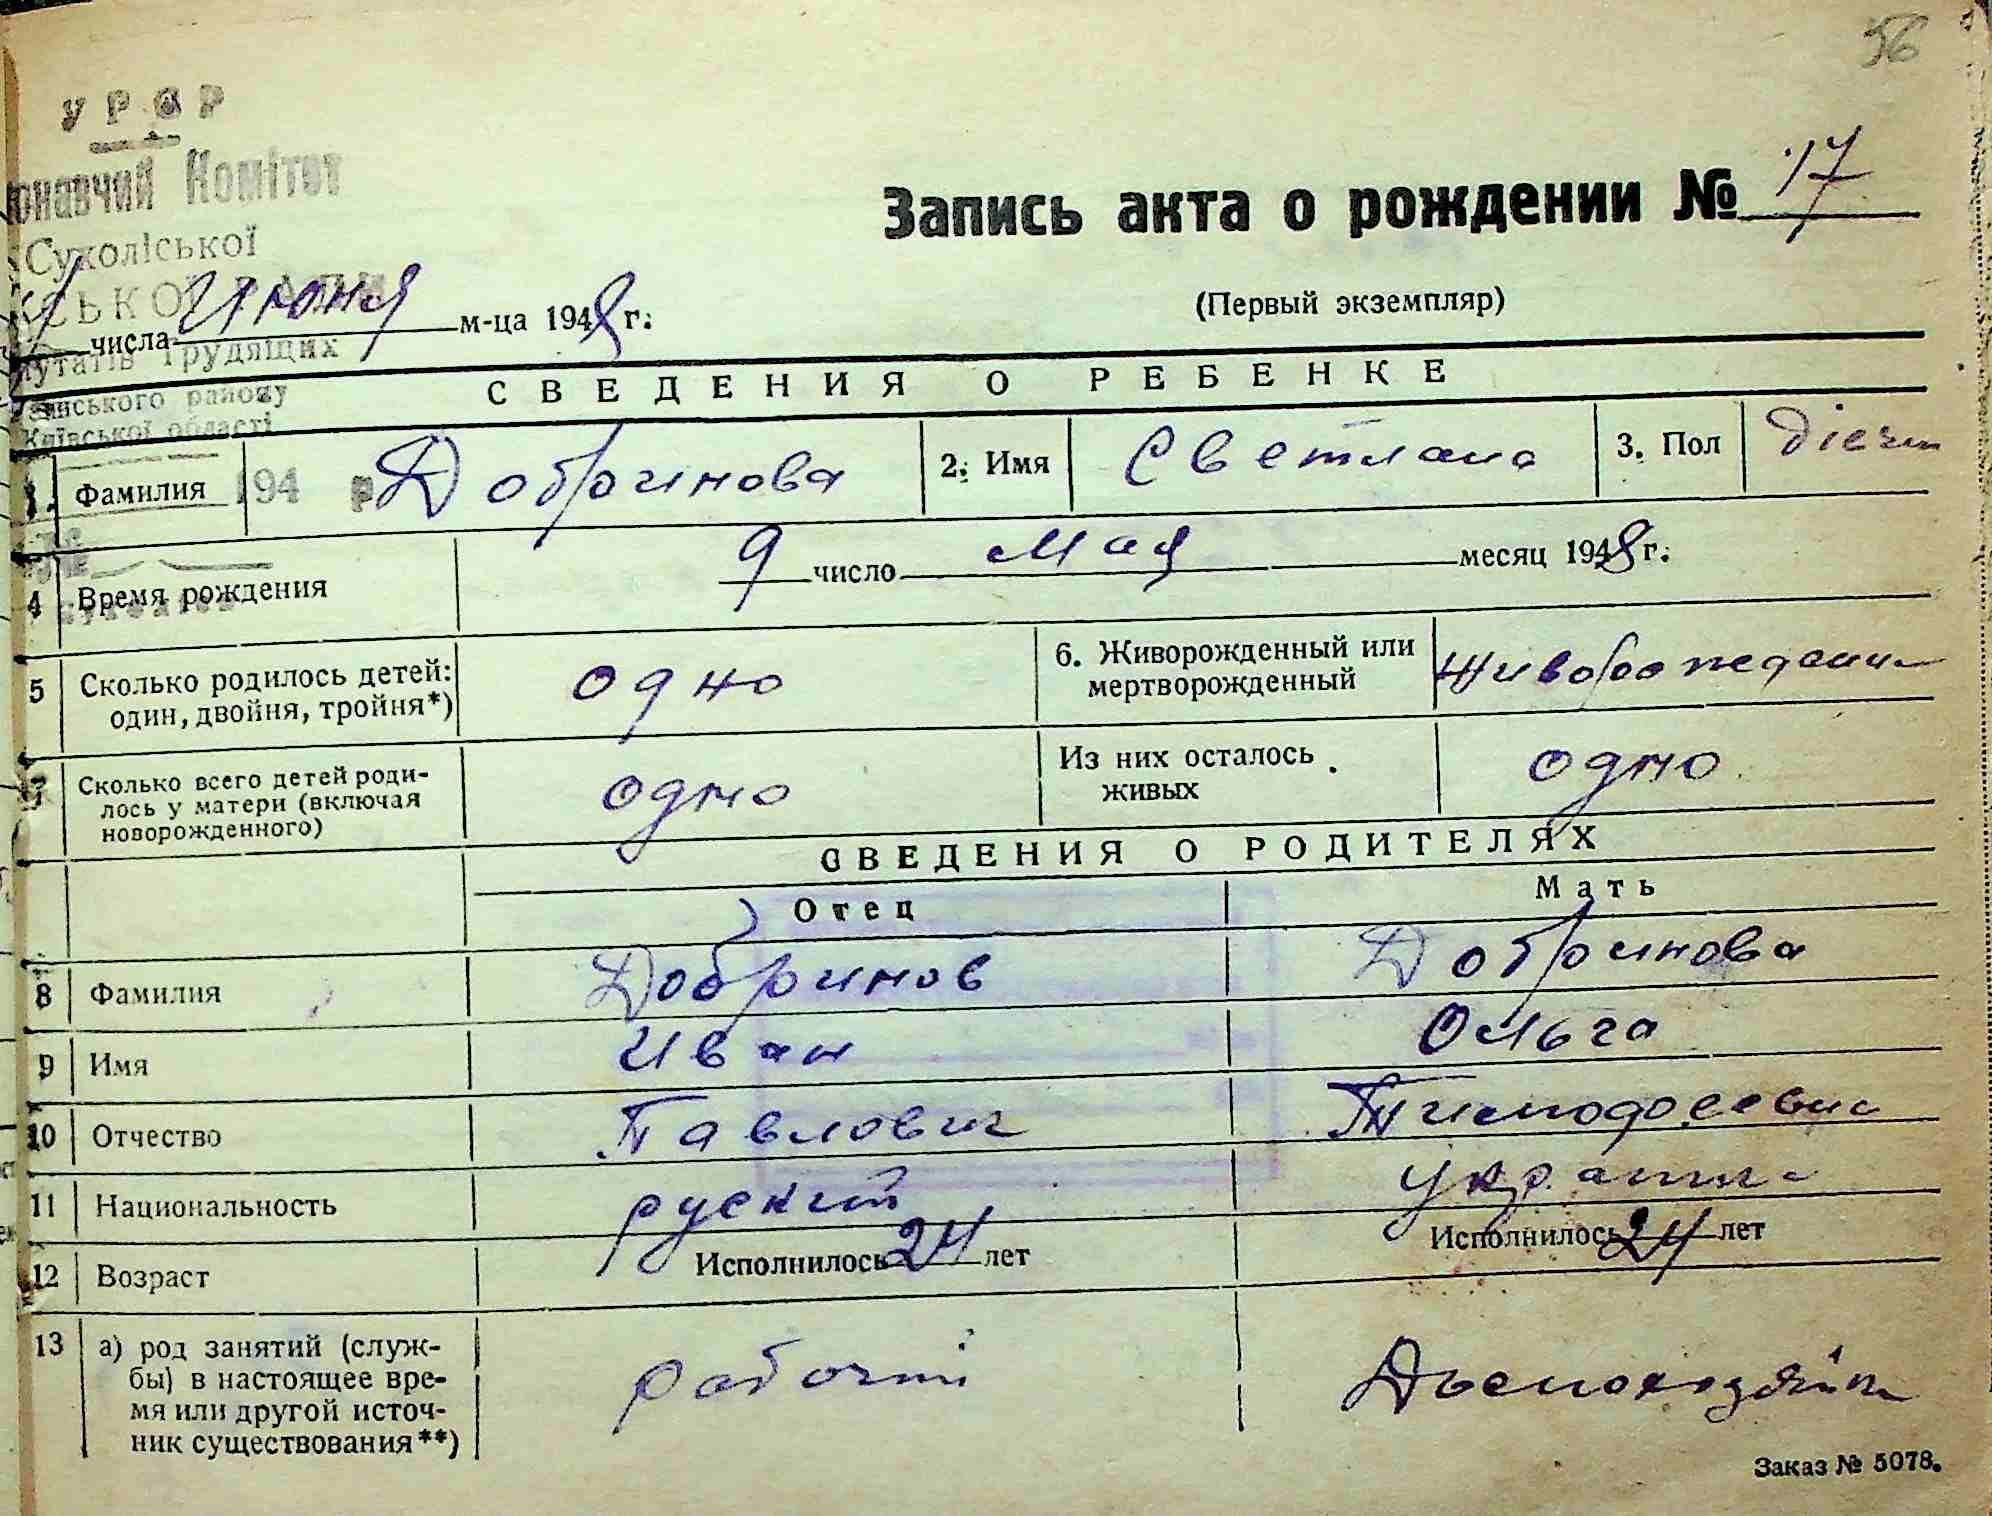 56
УРСР
онавчий Комітет
Сухоліської
СЬКОЇ РАДИ
путатів Трудящих
Київської області
194 р
Запись акта о рождении № 17
(Первый экземпляр)
числа июня м-ца 1948 г.
СВЕДЕНИЯ О РЕБЕНКЕ
1. Фамилия Добринова 2. Имя Светлана 3. Пол
4 Время рождения 9 число мая месяц 1948 г.
5 Сколько родилось детей: один, двойня, тройня*) одно
6. Живорожденный или мертворожденный
7 Сколько всего детей роди-
лось у матери (включая
новорожденного) одно
Из них осталось живых одно
СВЕДЕНИЯ О РОДИТЕЛЯХ
Отец Мать
8 Фамилия Добринов Добринова
9 Имя Иван Ольга
10 Отчество Павлович
11 Национальность руский
12 Возраст Исполнилось 24 лет Исполнилось 24 лет
13 а) род занятий (служ-
бы) в настоящее вре-
мя или другой источ-
ник существования**) рабочий
Заказ № 5078.